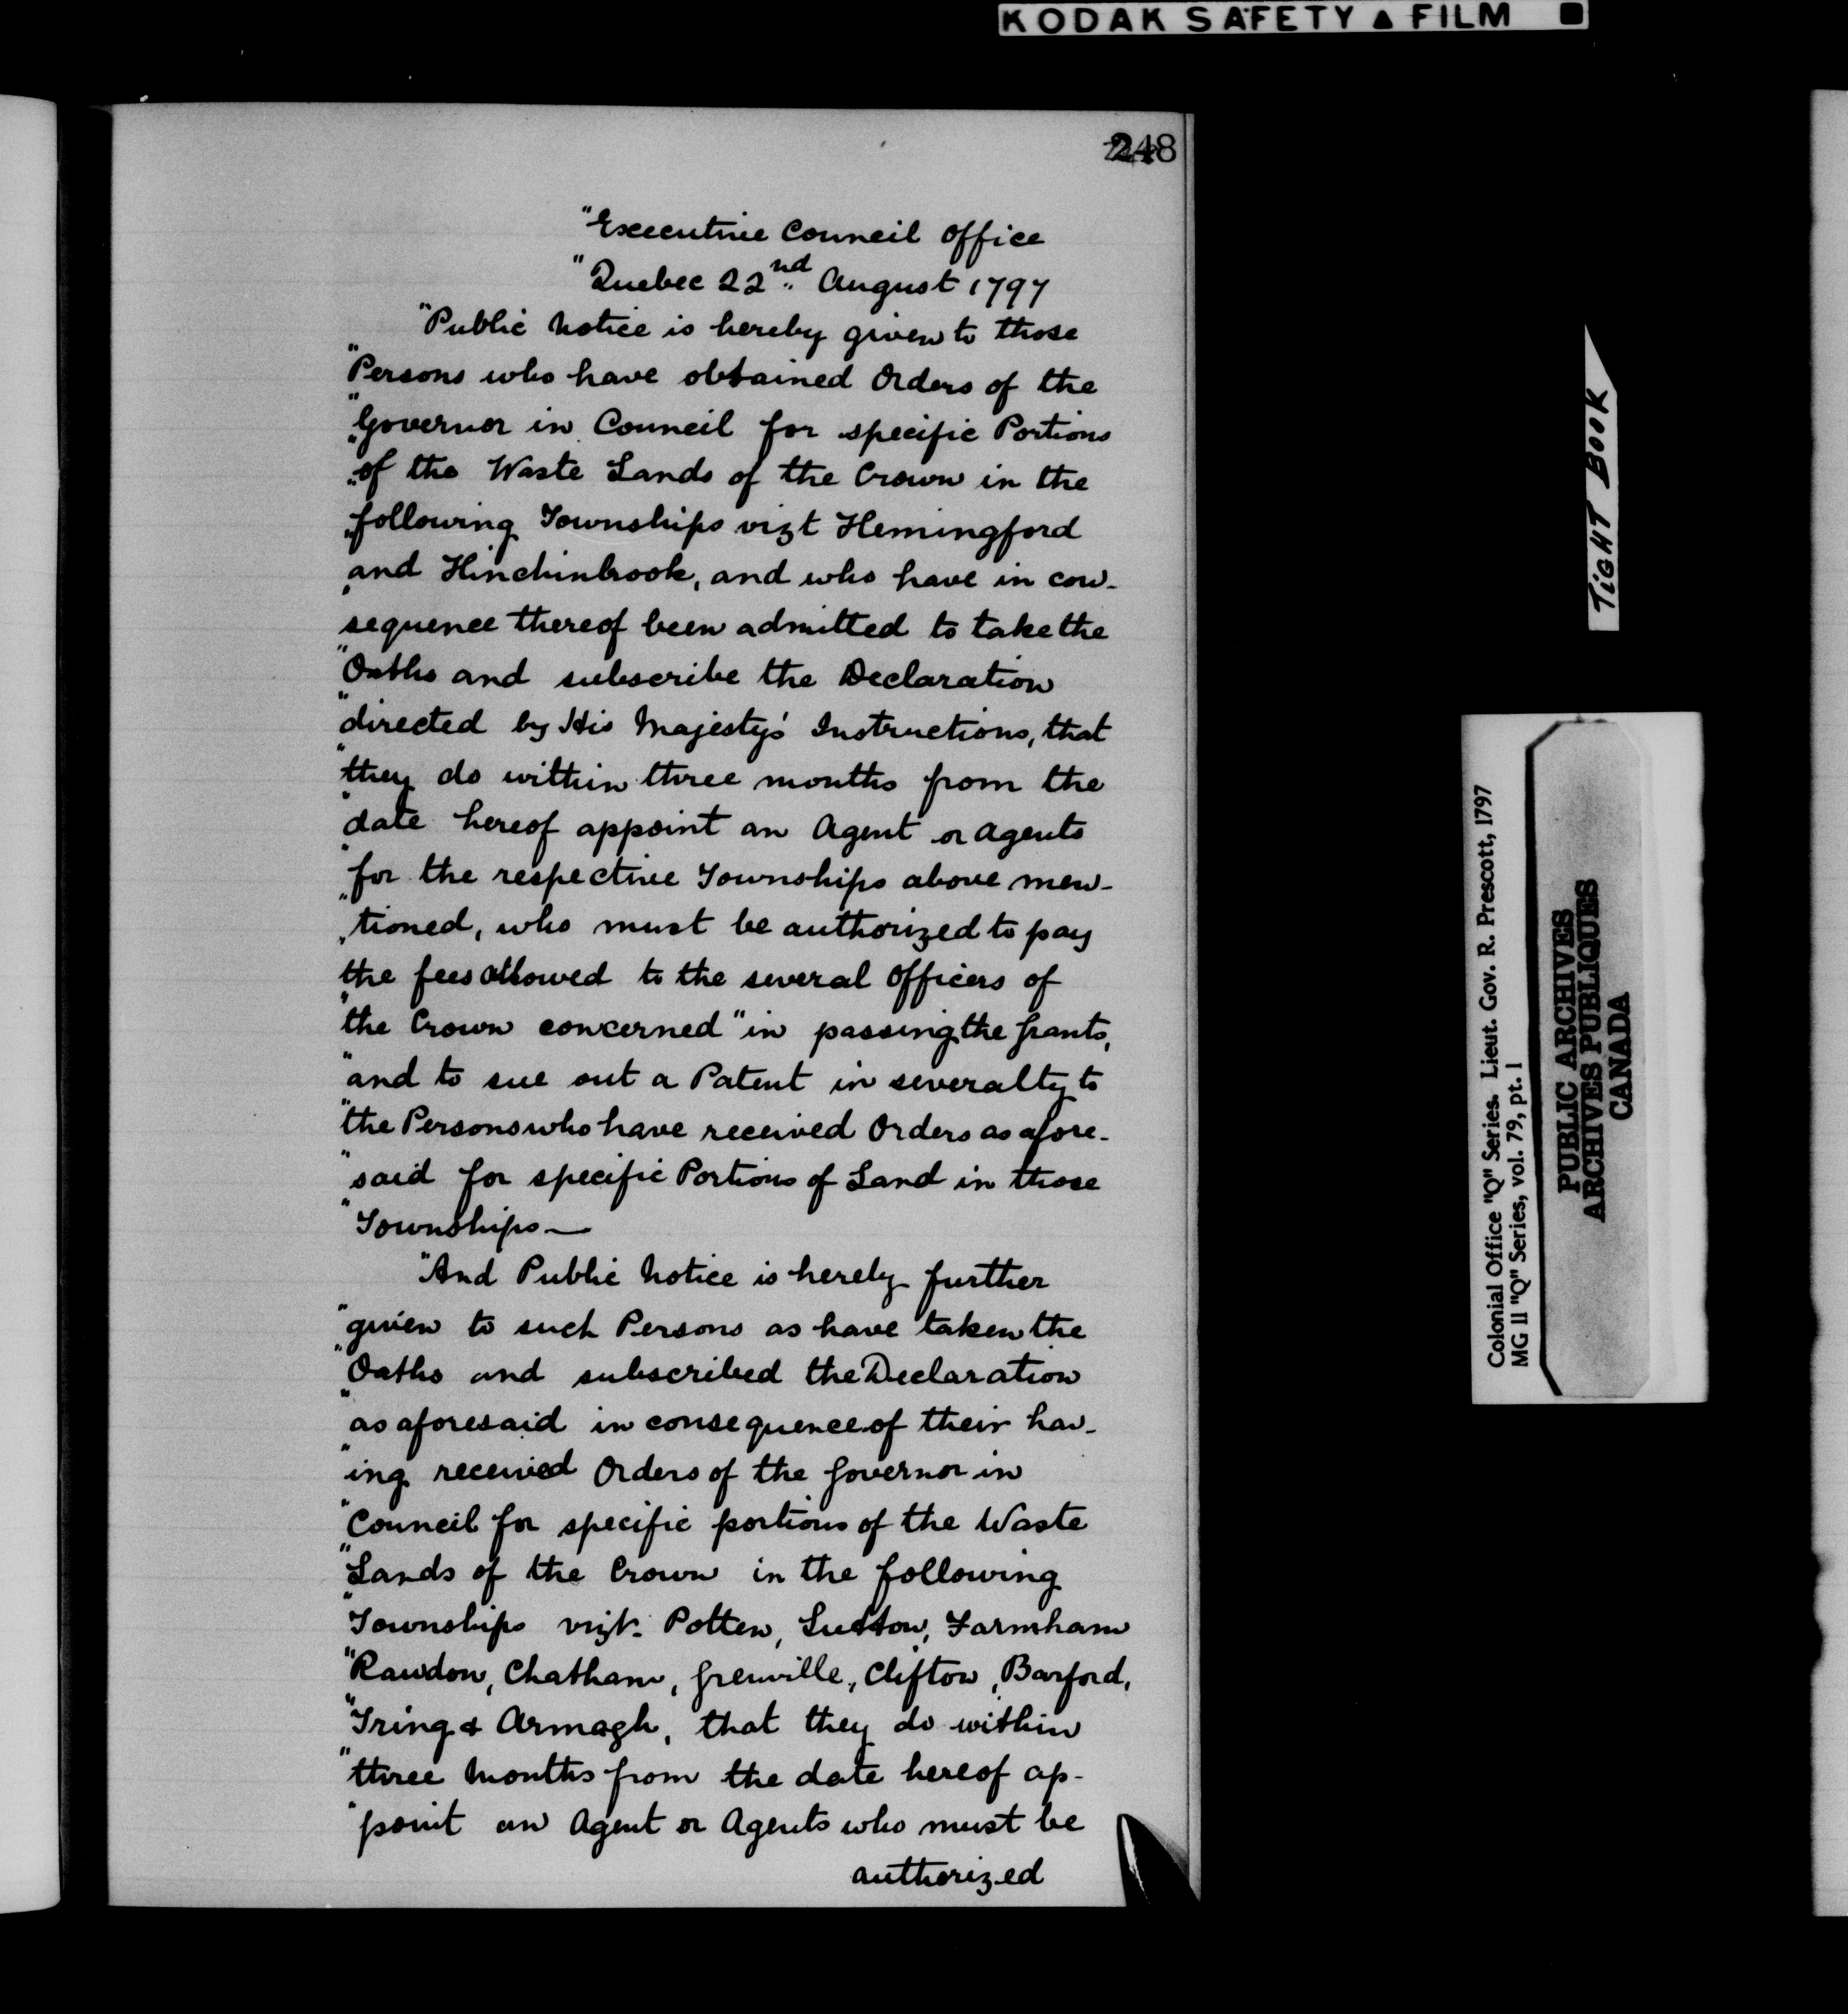 KODAK SAFETY ▲ FILM
248
"Executive Council Office
"Quebec 22nd. August 1797
"Public Notice is hereby given to those
"Persons who have obtained Orders of the
"Governor in Council for specific Portions
"of the Waste Lands of the Crown in the
"following Townships vizt Hemingford
"and Hinchinbrook, and who have in con-
"sequence thereof been admitted to take the
"Oaths and subscribe the Declaration
"directed by His Majesty's Instructions, that
"they do within three months from the
"date hereof appoint an Agent or Agents
"for the respective Townships above men-
"tioned, who must be authorized to pay
the fees allowed to the several Officers of
"the Crown concerned "in passing the grants,
"and to sue out a Patent in severalty to
"the Persons who have received Orders as afore-
"said for specific Portions of Land in those
"Townships —
"And Public Notice is hereby further
"given to such Persons as have taken the
"Oaths and subscribed the Declaration
"as aforesaid in consequence of their hav-
"ing received Orders of the Governor in
"Council for specific portions of the Waste
"Lands of the Crown in the following
"Townships vizt. Potten, Sutton, Farmham
"Rawdon, Chatham, Grenville, Clifton, Barford,
"Tring & Armagh, that they do within
"three Months from the date hereof ap-
"point an Agent or Agents who must be
authorized
TIGHT BOOK
Colonial Office "Q" Series. Lieut. Gov. R. Prescott, 1797
MG 11 "Q" Series, vol. 79, pt. 1
PUBLIC ARCHIVES
ARCHIVES PUBLIQUES
CANADA